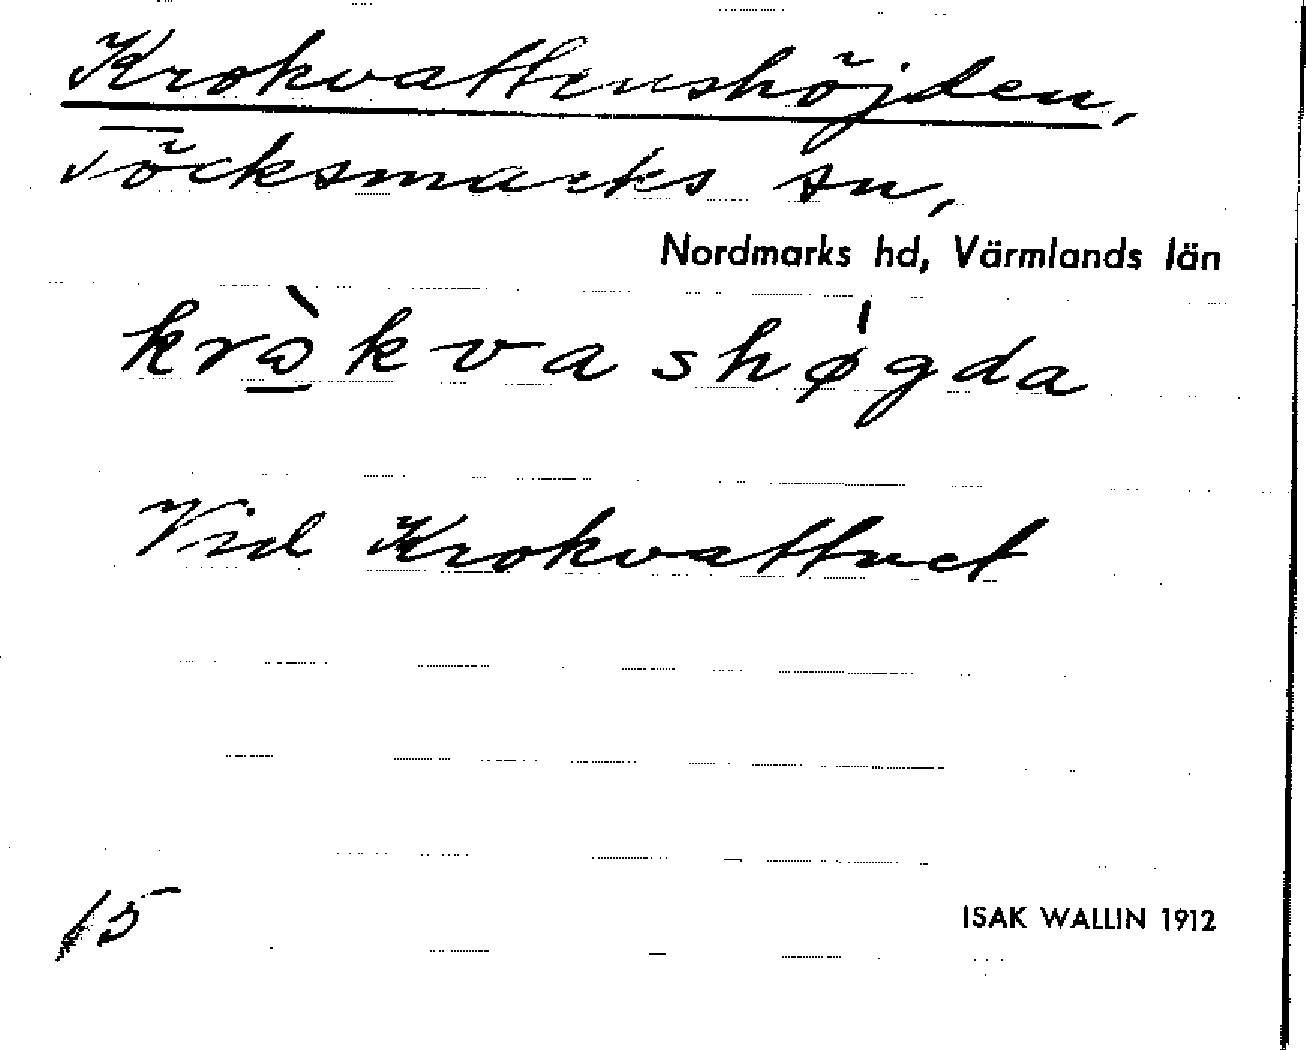 Krokvattenshöjden,
Töcksmarks sn,
Nordmarks hd, Värmlands län
krò̠kvashø̍gda
Vid Krokvattnet
15
ISAK WALLIN 1912